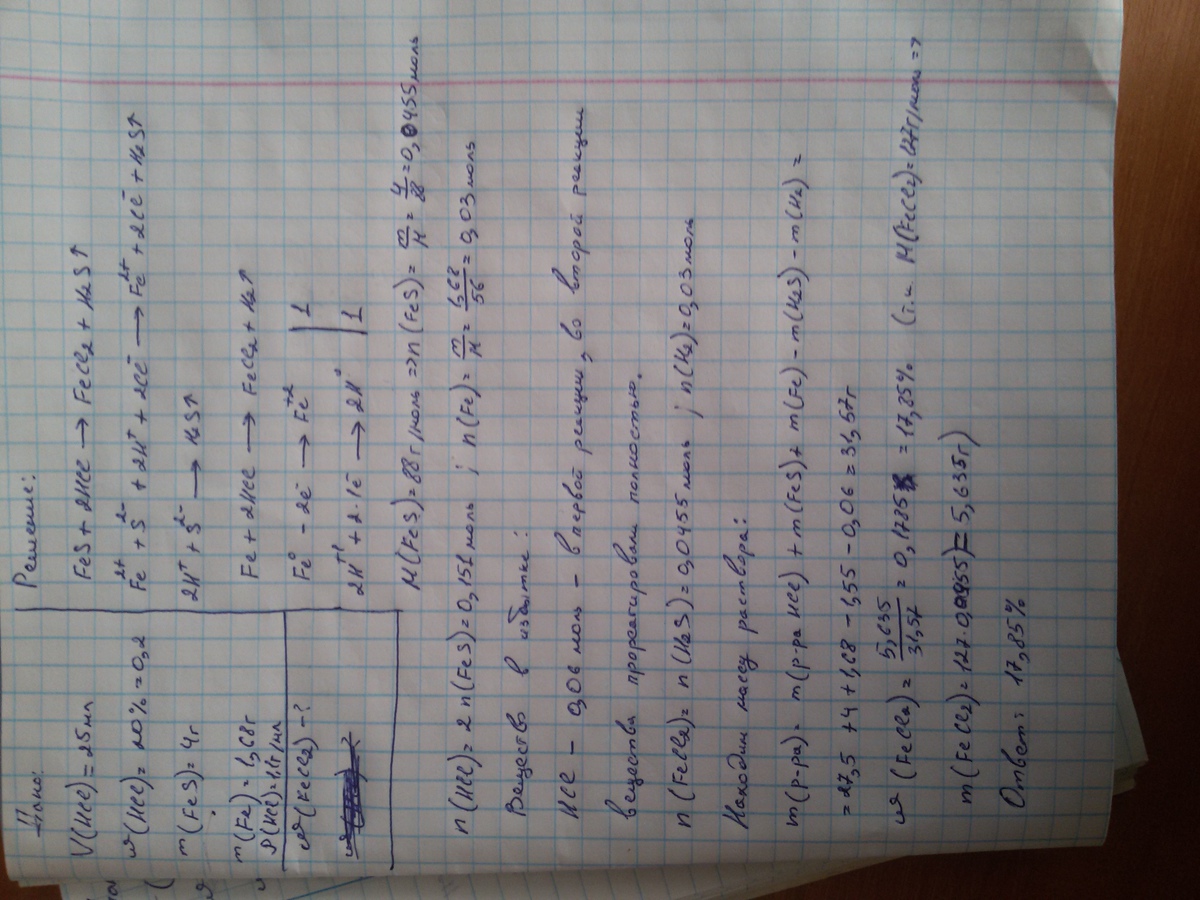 Дано:
V(HCl) = 25 мл
ω(HCl) = 20% = 0,2
m(FeS) = 4г
m(Fe) = 1,68г
ρ(HCl) = 1,1г/мл
ω(FeCl₂) - ?
Решение:
FeS + 2HCl → FeCl₂ + H₂S↑
Fe²⁺ + S²⁻ + 2H⁺ + 2Cl⁻ → Fe²⁺ + 2Cl⁻ + H₂S↑
2H⁺ + S²⁻ → H₂S↑
Fe + 2HCl → FeCl₂ + H₂↑
Fe⁰ - 2ē → Fe⁺² | 1
2H⁺¹ + 2·1ē → 2H⁰ | 1
M(FeS) = 88г/моль => n(FeS) = m/M = 4/88 = 0,0455 моль
n(HCl) = 2 n(FeS) = 0,151 моль ; n(Fe) = m/M = 1,68/56 = 0,03 моль
Веществo в избытке:
HCl - 0,06 моль - в первой реакции, во второй реакции
вещества прореагировали полностью.
n(FeCl₂) = n(H₂S) = 0,0455 моль ; n(H₂) = 0,03 моль
Находим массу раствора:
m(р-ра) = m(р-ра HCl) + m(FeS) + m(Fe) - m(H₂S) - m(H₂) =
= 27,5 + 4 + 1,68 - 1,55 - 0,06 = 31,57г
ω(FeCl₂) = 5,635/31,57 = 0,1785 = 17,85% (т.к. M(FeCl₂) = 127г/моль =>
m(FeCl₂) = 127·0,0455) = 5,635г)
Ответ: 17,85%